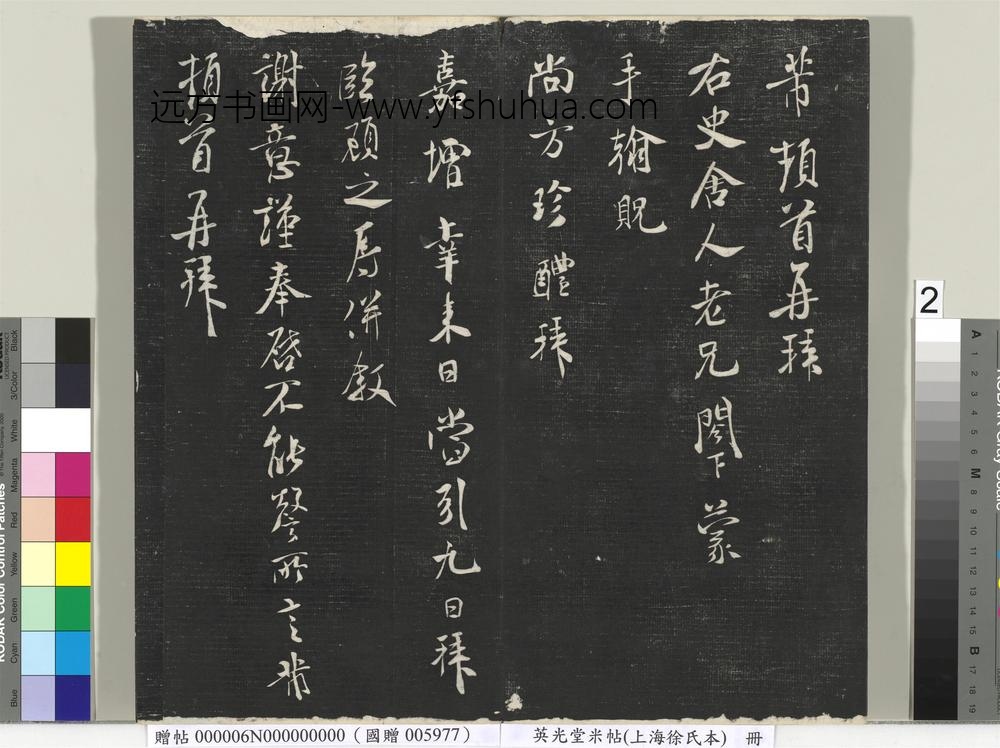 芾頓首再拜
右史舍人老兄閣下蒙
手翰貺
尚方珍醴拜
嘉增幸來日當引九日拜
臨顧之辱併敘
謝意謹奉啓不能謦所言芾
頓首再拜
远方书画网-www.yfshuhua.com
2
贈帖 000006N000000000（國贈 005977）
英光堂米帖(上海徐氏本) 冊
KODAK Color Control Patches
Blue
Cyan
Green
Yellow
Red
Magenta
White
3/Color
Black
A
1
2
3
4
5
6
M
8
9
10
11
12
13
14
15
B
17
18
19